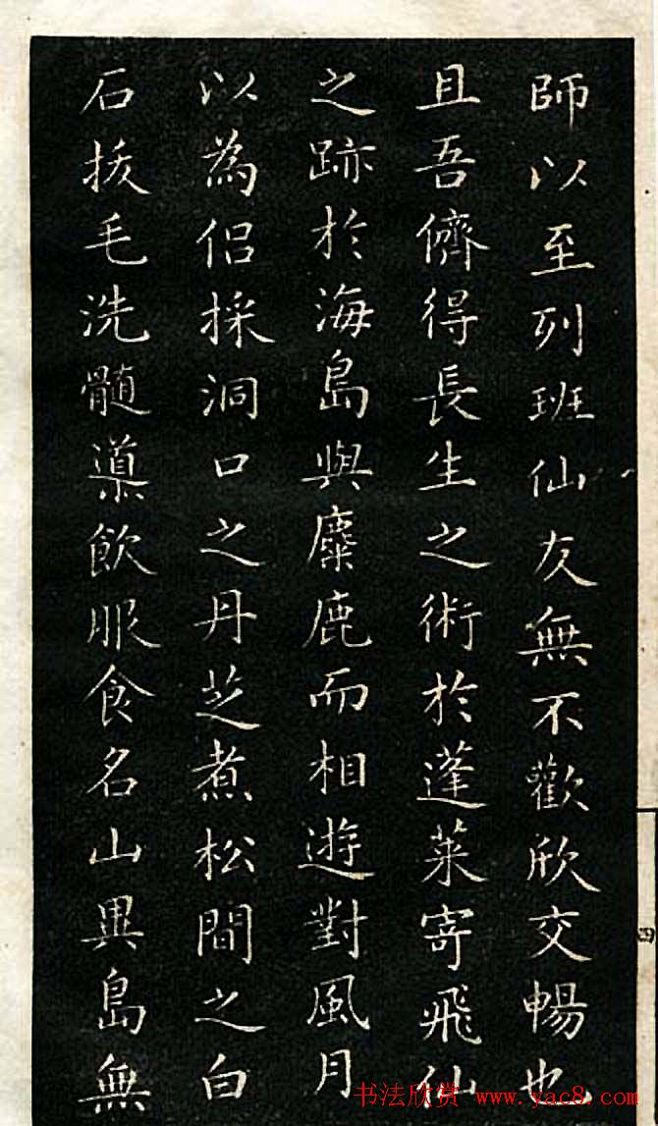 師以至列班仙友無不歡欣交暢也
且吾儕得長生之術於蓬萊寄飛仙
之跡於海島與麋鹿而相遊對風月
以為侶採洞口之丹芝煮松間之白
石拔毛洗髓飲服食名山異島無
四
书法欣赏 www.yac8.com